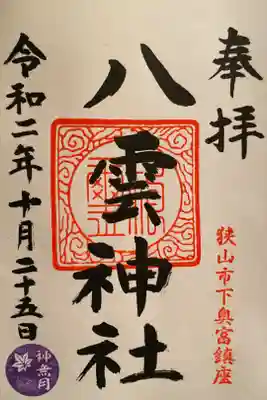 奉拝
狭山市下奥富鎮座
八雲神社
令和二年十月二十五日
神無月